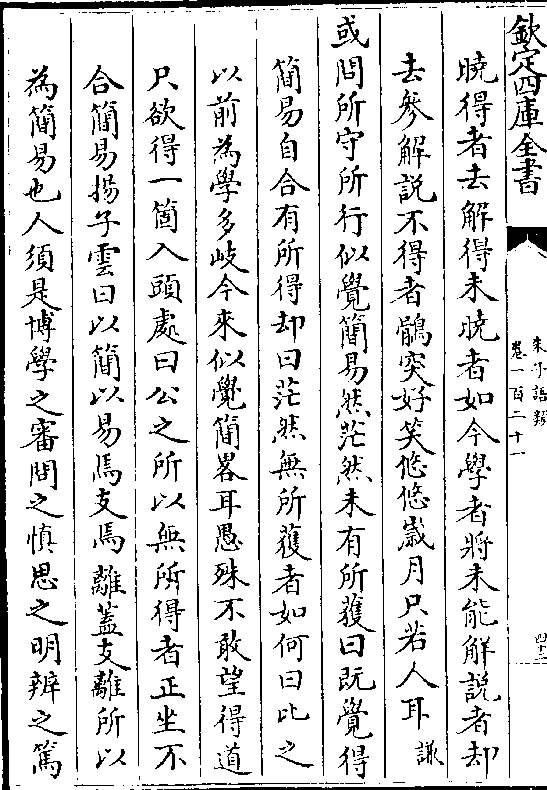 欽定四庫全書
朱子語類
卷一百二十一
四十二
曉得者去解得未曉者如今學者將未能解說者却
去參解說不得者鶻突好笑悠悠歲月只若人耳謙
或問所守所行似覺簡易然茫然未有所獲曰既覺得
簡易自合有所得却曰茫然無所獲者如何曰比之
以前為學多岐今來似覺簡畧耳愚殊不敢望得道
只欲得一箇入頭處曰公之所以無所得者正坐不
合簡易揚子雲曰以簡以易焉支焉離蓋支離所以
為簡易也人須是博學之審問之慎思之明辨之篤